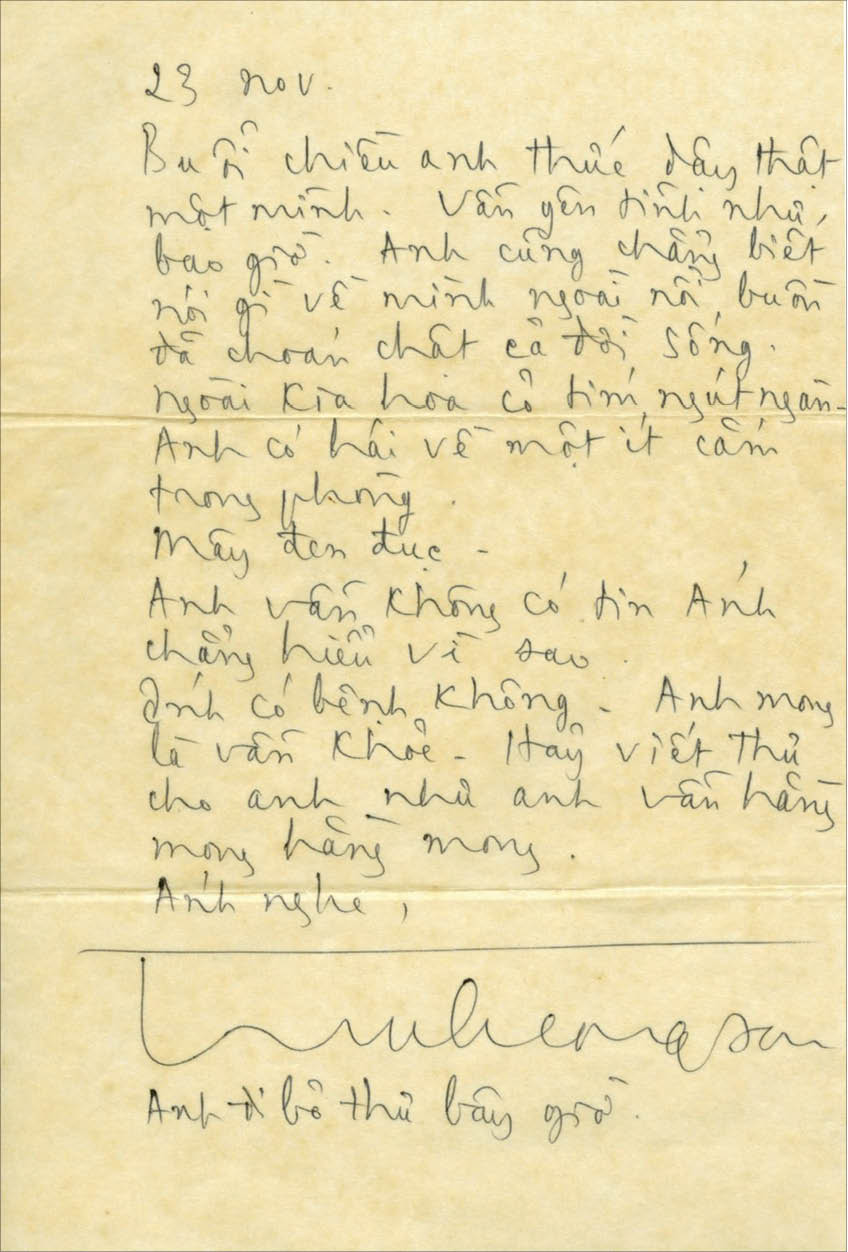 23 nov.
Buổi chiều anh thức dậy thật
một mình. Vẫn yên tĩnh như
bao giờ. Anh cũng chẳng biết
nói gì về mình ngoài nỗi buồn
đã choán chật cả đời sống.
Ngoài kia hoa cỏ tím ngút ngàn -
Anh có hái về một ít cắm
trong phòng.
Mây đen đục -
Anh vẫn không có tin Ánh
chẳng hiểu vì sao.
Ánh có bệnh không - Anh mong
là vẫn khỏe - Hãy viết thư
cho anh như anh vẫn hằng
mong hằng mong.
Ánh nghe,
trinhcongson
Anh đi bỏ thư bây giờ.